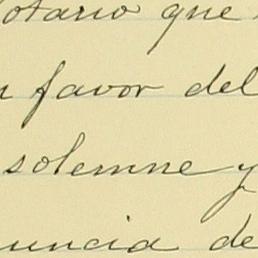 otario que
favor del
solemne y
uncia de